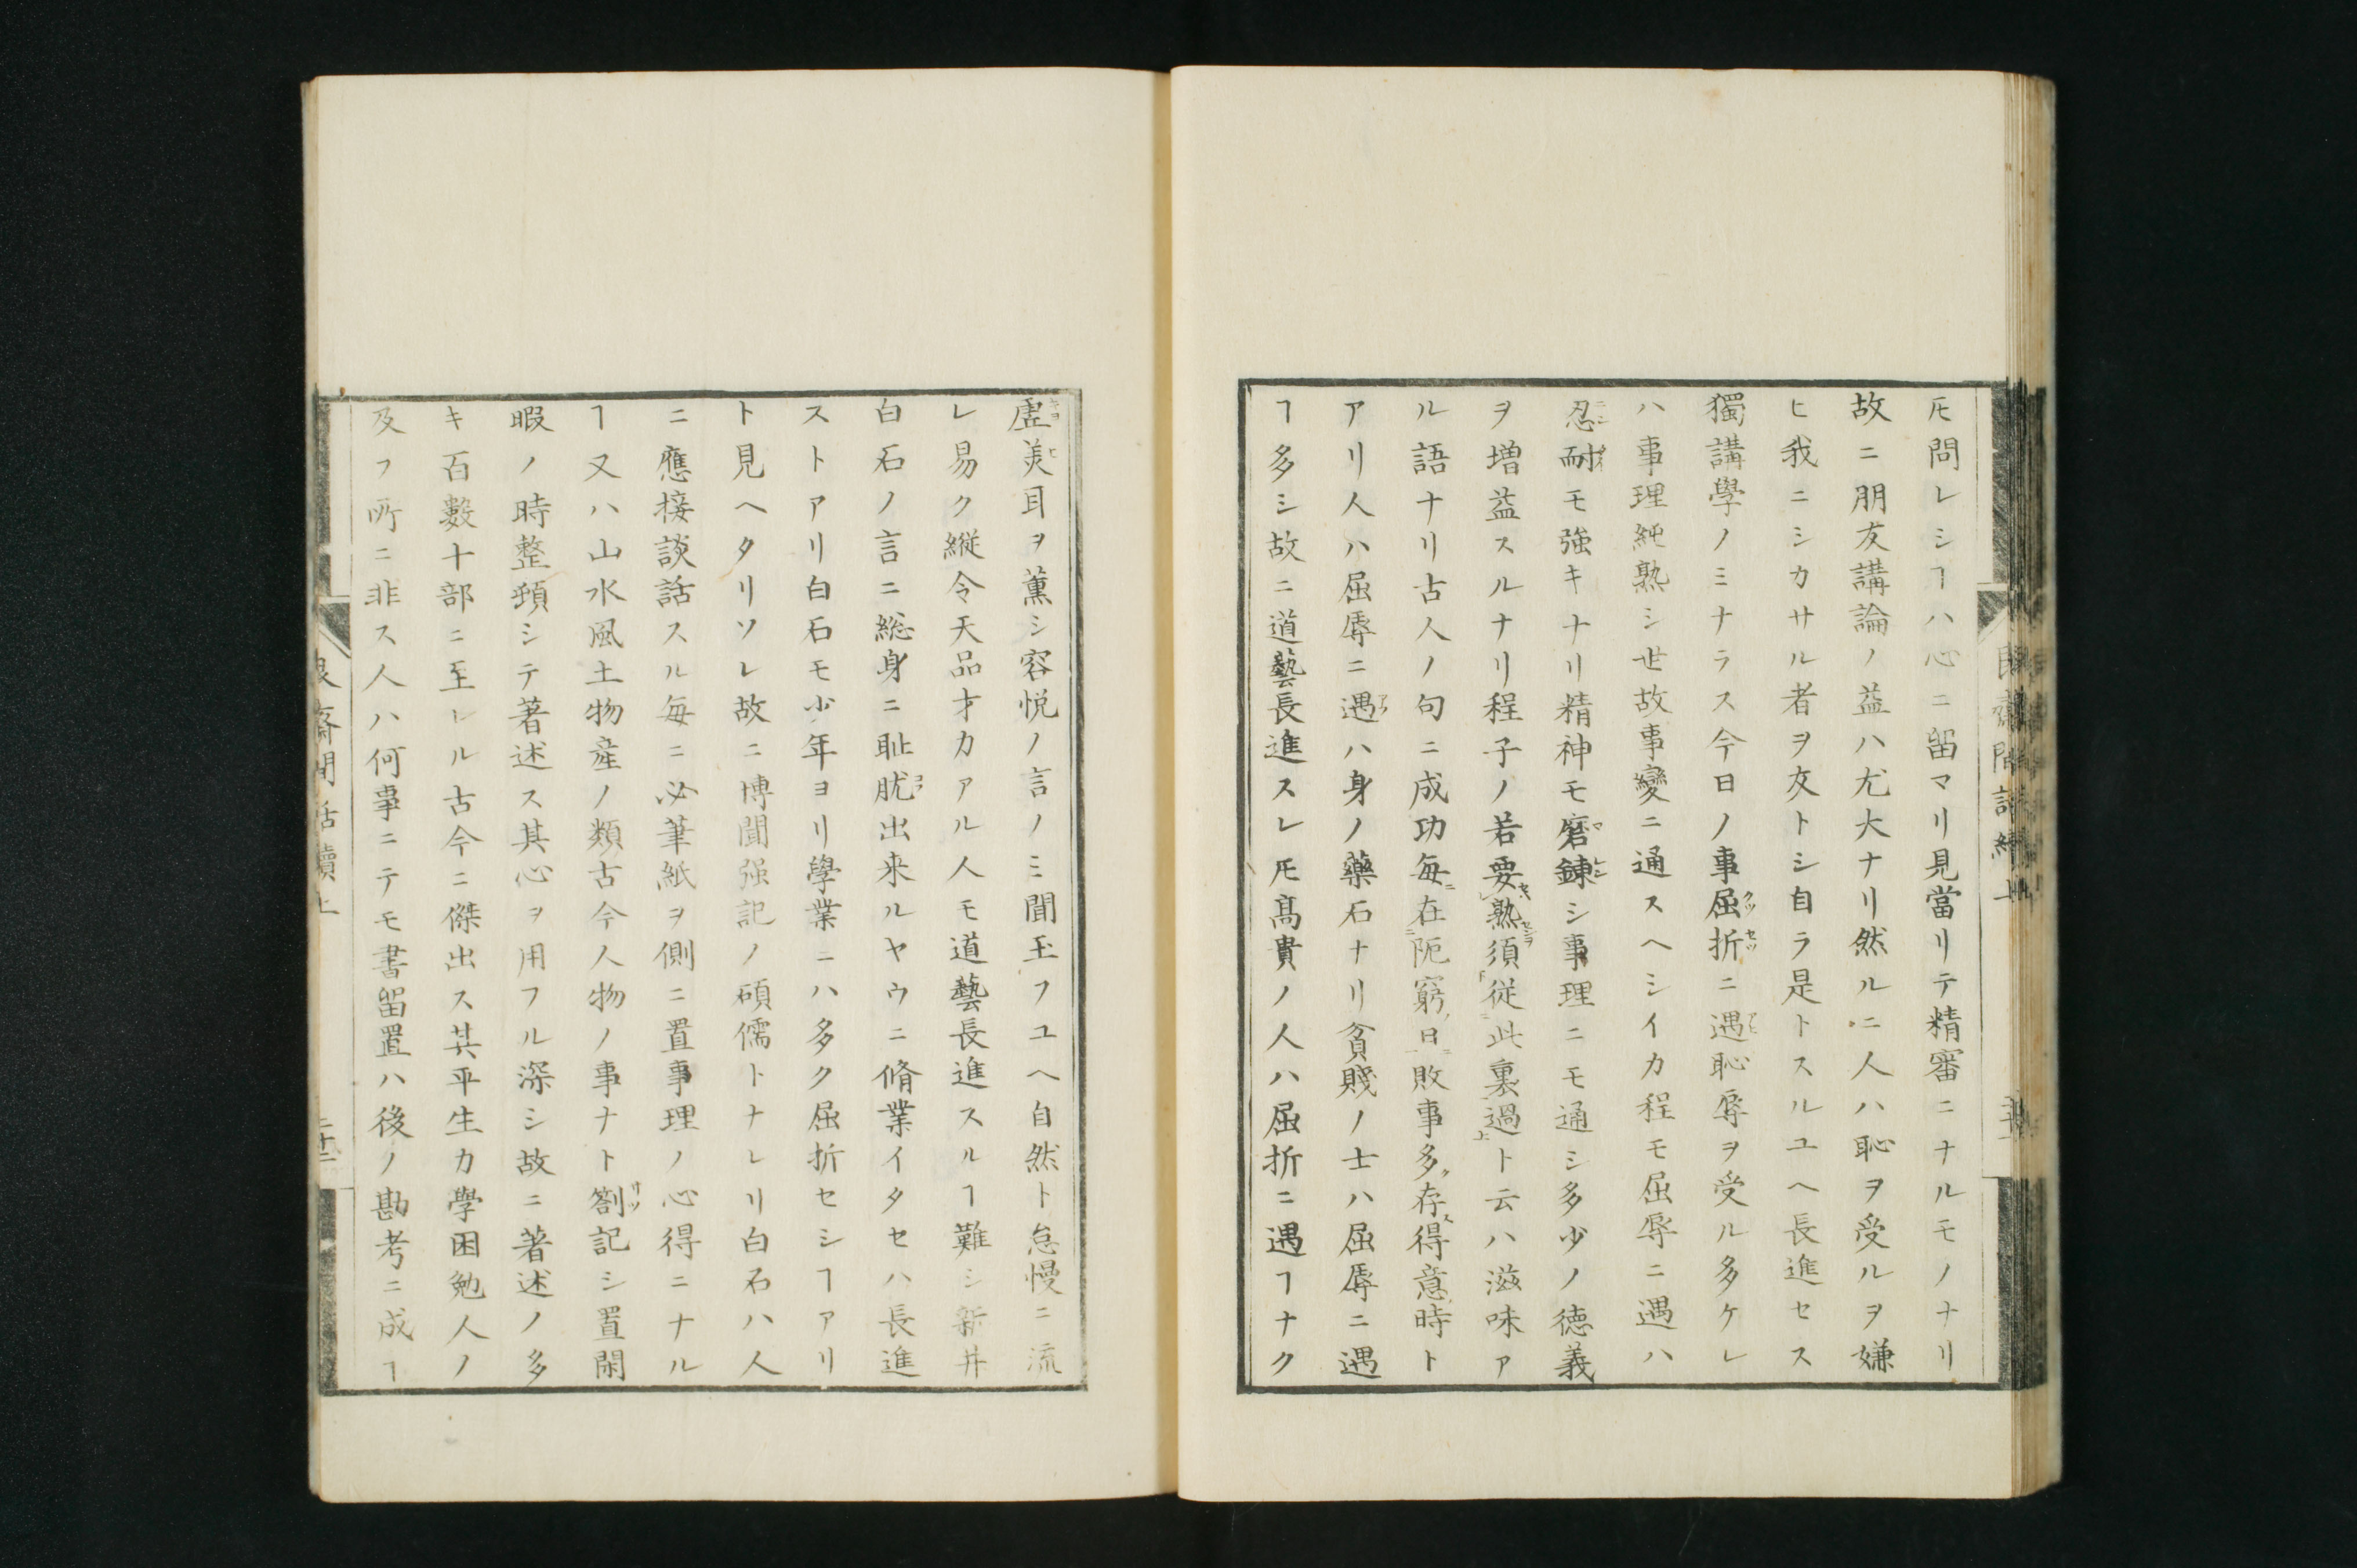 㪳問レシヿハ心ニ留マリ見當リテ精審ニナルモノナリ
故ニ朋友講論ノ益ハ尤大ナリ然ルニ人ハ恥ヲ受ルヲ嫌
ヒ我ニシカサル者ヲ友トシ自ラ是トスルユヘ長進セス
獨講學ノミナラス今日ノ事屈折ニ遇恥辱ヲ受ル多ケレ
ハ事理純熟シ世故事變ニ通スヘシイカ程モ屈辱ニ遇ハ
忍耐モ強キナリ精神モ磨錬シ事理ニモ通シ多少ノ徳義
ヲ増益スルナリ程子ノ若要熟須従此裏過ト云ハ滋味ア
ル語ナリ古人ノ句ニ成功毎在阨窮日敗事多存得意時ト
アリ人ハ屈辱ニ遇ハ身ノ藥石ナリ貧賤ノ士ハ屈辱ニ遇
ヿ多シ故ニ道藝長進スレ𪜈髙貴ノ人ハ屈折ニ遇ヿナク
虚美耳ヲ薫シ容悦ノ言ノミ聞玉フユヘ自然ト怠慢ニ流
レ易ク縦令天品才力アル人モ道藝長進スルヿ難シ新井
白石ノ言ニ総身ニ耻肬出来ルヤウニ脩業イタセハ長進
ストアリ白石モ少年ヨリ學業ニハ多ク屈折セシヿアリ
ト見ヘタリソレ故ニ博聞强記ノ碩儒トナレリ白石ハ人
ニ應接談話スル毎ニ必筆紙ヲ側ニ置事理ノ心得ニナル
ヿ又ハ山水風土物産ノ類古今人物ノ事ナト劄記シ置閑
暇ノ時整頓シテ著述ス其心ヲ用フル深シ故ニ著述ノ多
キ百數十部ニ至レル古今ニ傑出ス其平生カ學困勉人ノ
及フ所ニ非ス人ハ何事ニテモ書留置ハ後ノ勘考ニ成ヿ
艮齋閒話續上
二十二